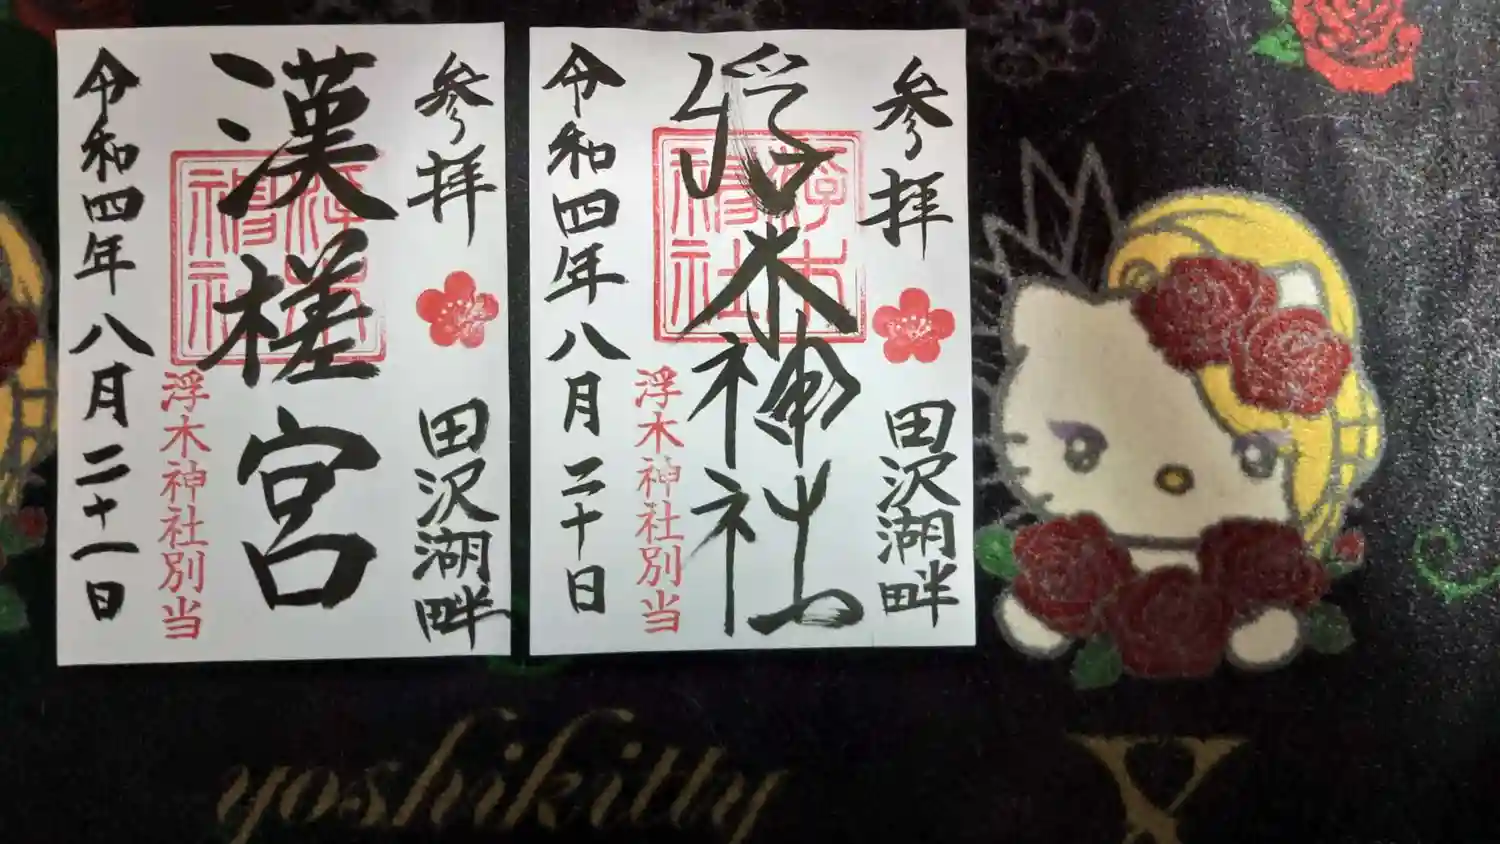 参拝 田沢湖畔
浮木神社
浮木神社別当
令和四年八月二十日
参拝 田沢湖畔
漢槎宮
浮木神社別当
令和四年八月二十一日
yoshikitty
X